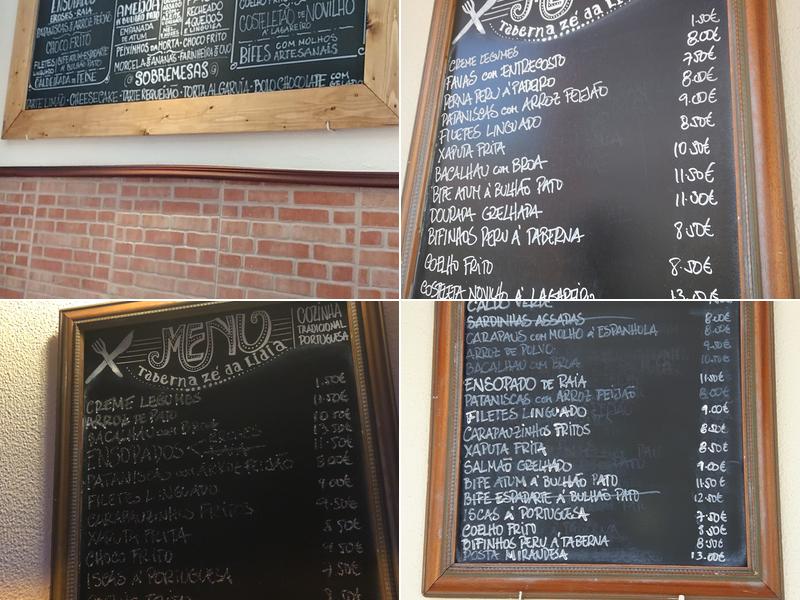 ENSOPADO
EIROSES-RAIA
PATANISCAS d'ARROZ FEIJÃO
CHOCO FRITO
CALDEIRADA de PEIXE
AMEIJOA
A' BULHÃO PATO
EMPADA DE
PEIXINHOS DA HORTA-CHOCO FRITO
MORCELA & ANANÁS-FARINHEIRA & OVO
FUMADO
QUEIJOS
COSTELETÃO de NOVILHO
A' LAGAREIRO
BIFES COM MOLHOS
ARTESANAIS
SOBREMESAS
TARTE LIMÃO-CHEESECAKE-TARTE REQUEIJÃO-TORTA ALGARVIA-BOLO CHOCOLATE COM
Taberna zé da Lídia
CREME LEGUMES 1.50€
FAVAS com ENTRECOSTO 8.00€
PERNA PERU A' PADEIRO 7.50€
PATANISCAS com ARROZ FEIJÃO 8.00€
FILETES LINGUADO 9.00€
XAPUTA FRITA 8.50€
BACALHAU com BROA 10.50€
BIFE ATUM A' BULHÃO PATO 11.50€
DOURADA GRELHADA 11.00€
BIFINHOS PERU A' TABERNA 8.50€
COELHO FRITO 8.50€
COSTELETA NOVILHO A' LAGAREIRO 13.00€
MENU
COZINHA
TRADICIONAL
PORTUGUESA
Taberna zé da Lídia
CREME LEGUMES 1.50€
ARROZ DE PATO 11.50€
BACALHAU com BROA 10.50€
13.50€
ENSOPADOS 11.50€
PATANISCAS com ARROZ FEIJÃO 8.00€
FILETES LINGUADO 9.00€
CARAPAUZINHOS FRITOS 9.50€
XAPUTA FRITA 8.50€
CHOCO FRITO 9.50€
ISCAS A' PORTUGUESA 7.50€
COELHO FRITO 8.50€
CALDO VERDE
SARDINHAS ASSADAS 8.00€
CARAPAUS com MOLHO A' ESPANHOLA 8.00€
ARROZ DE POLVO 9.50€
BACALHAU com BROA 10.50€
ENSOPADO DE RAIA 11.50€
PATANISCAS com ARROZ FEIJÃO 8.00€
FILETES LINGUADO 9.00€
CARAPAUZINHOS FRITOS 8.50€
XAPUTA FRITA 8.50€
SALMÃO GRELHADO 9.00€
BIFE ATUM A' BULHÃO PATO 11.50€
BIFE ESPADARTE A' BULHÃO PATO 12.50€
ISCAS A' PORTUGUESA 7.50€
COELHO FRITO 8.50€
BIFINHOS PERU A' TABERNA 8.50€
POSTA MIRANDESA 13.00€